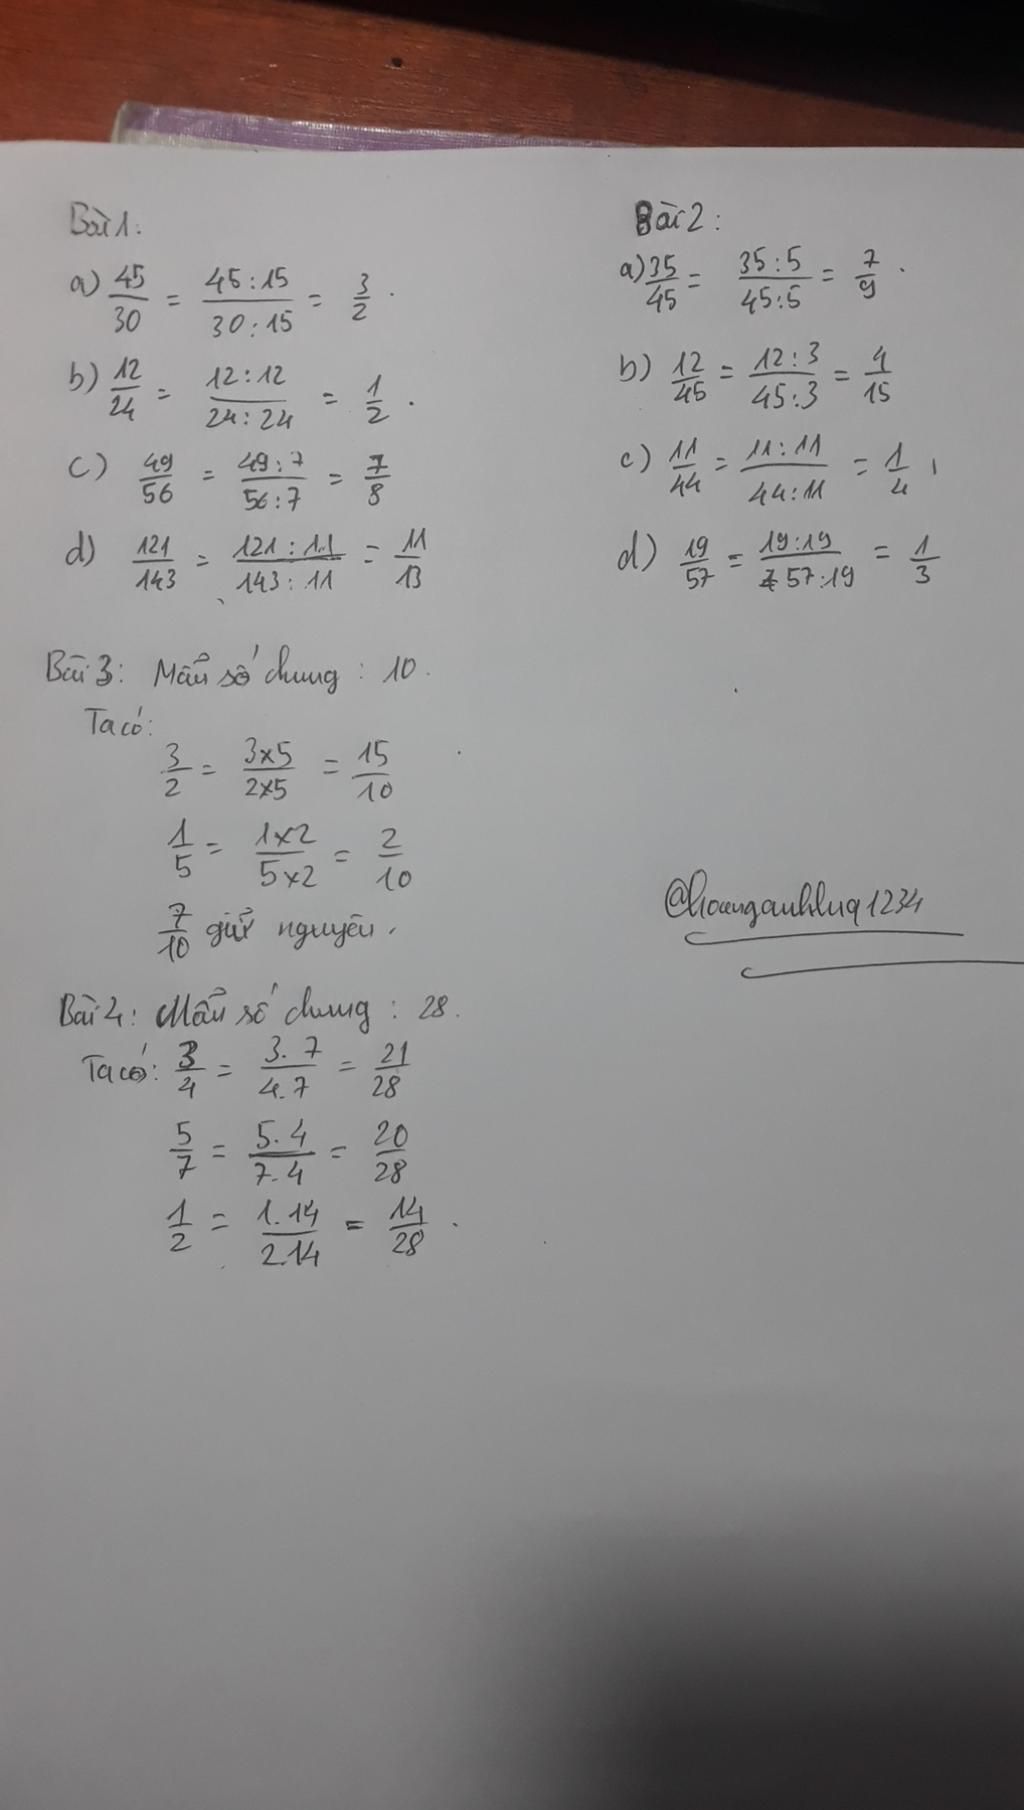 Bài 1:
a) 45/30 = 45:15/30:15 = 3/2.
b) 12/24 = 12:12/24:24 = 1/2.
c) 49/56 = 49:7/56:7 = 7/8
d) 121/143 = 121:11/143:11 = 11/13
Bài 2:
a) 35/45 = 35:5/45:5 = 7/9.
b) 12/45 = 12:3/45:3 = 4/15
c) 11/44 = 11:11/44:11 = 1/4
d) 19/57 = 19:19/57:19 = 1/3
Bài 3: Mẫu số chung: 10.
Ta có:
3/2 = 3x5/2x5 = 15/10
1/5 = 1x2/5x2 = 2/10
7/10 giữ nguyên.
@hoanganhluq1234
Bài 4: Mẫu số chung: 28.
Ta có: 3/4 = 3.7/4.7 = 21/28
5/7 = 5.4/7.4 = 20/28
1/2 = 1.14/2.14 = 14/28.